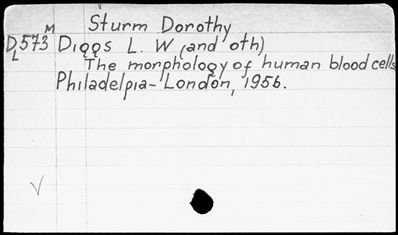 Sturm Dorothy
M
D573 Diggs L. W (and oth)
L
The morphology of human blood cells
Philadelpia-London, 1956.